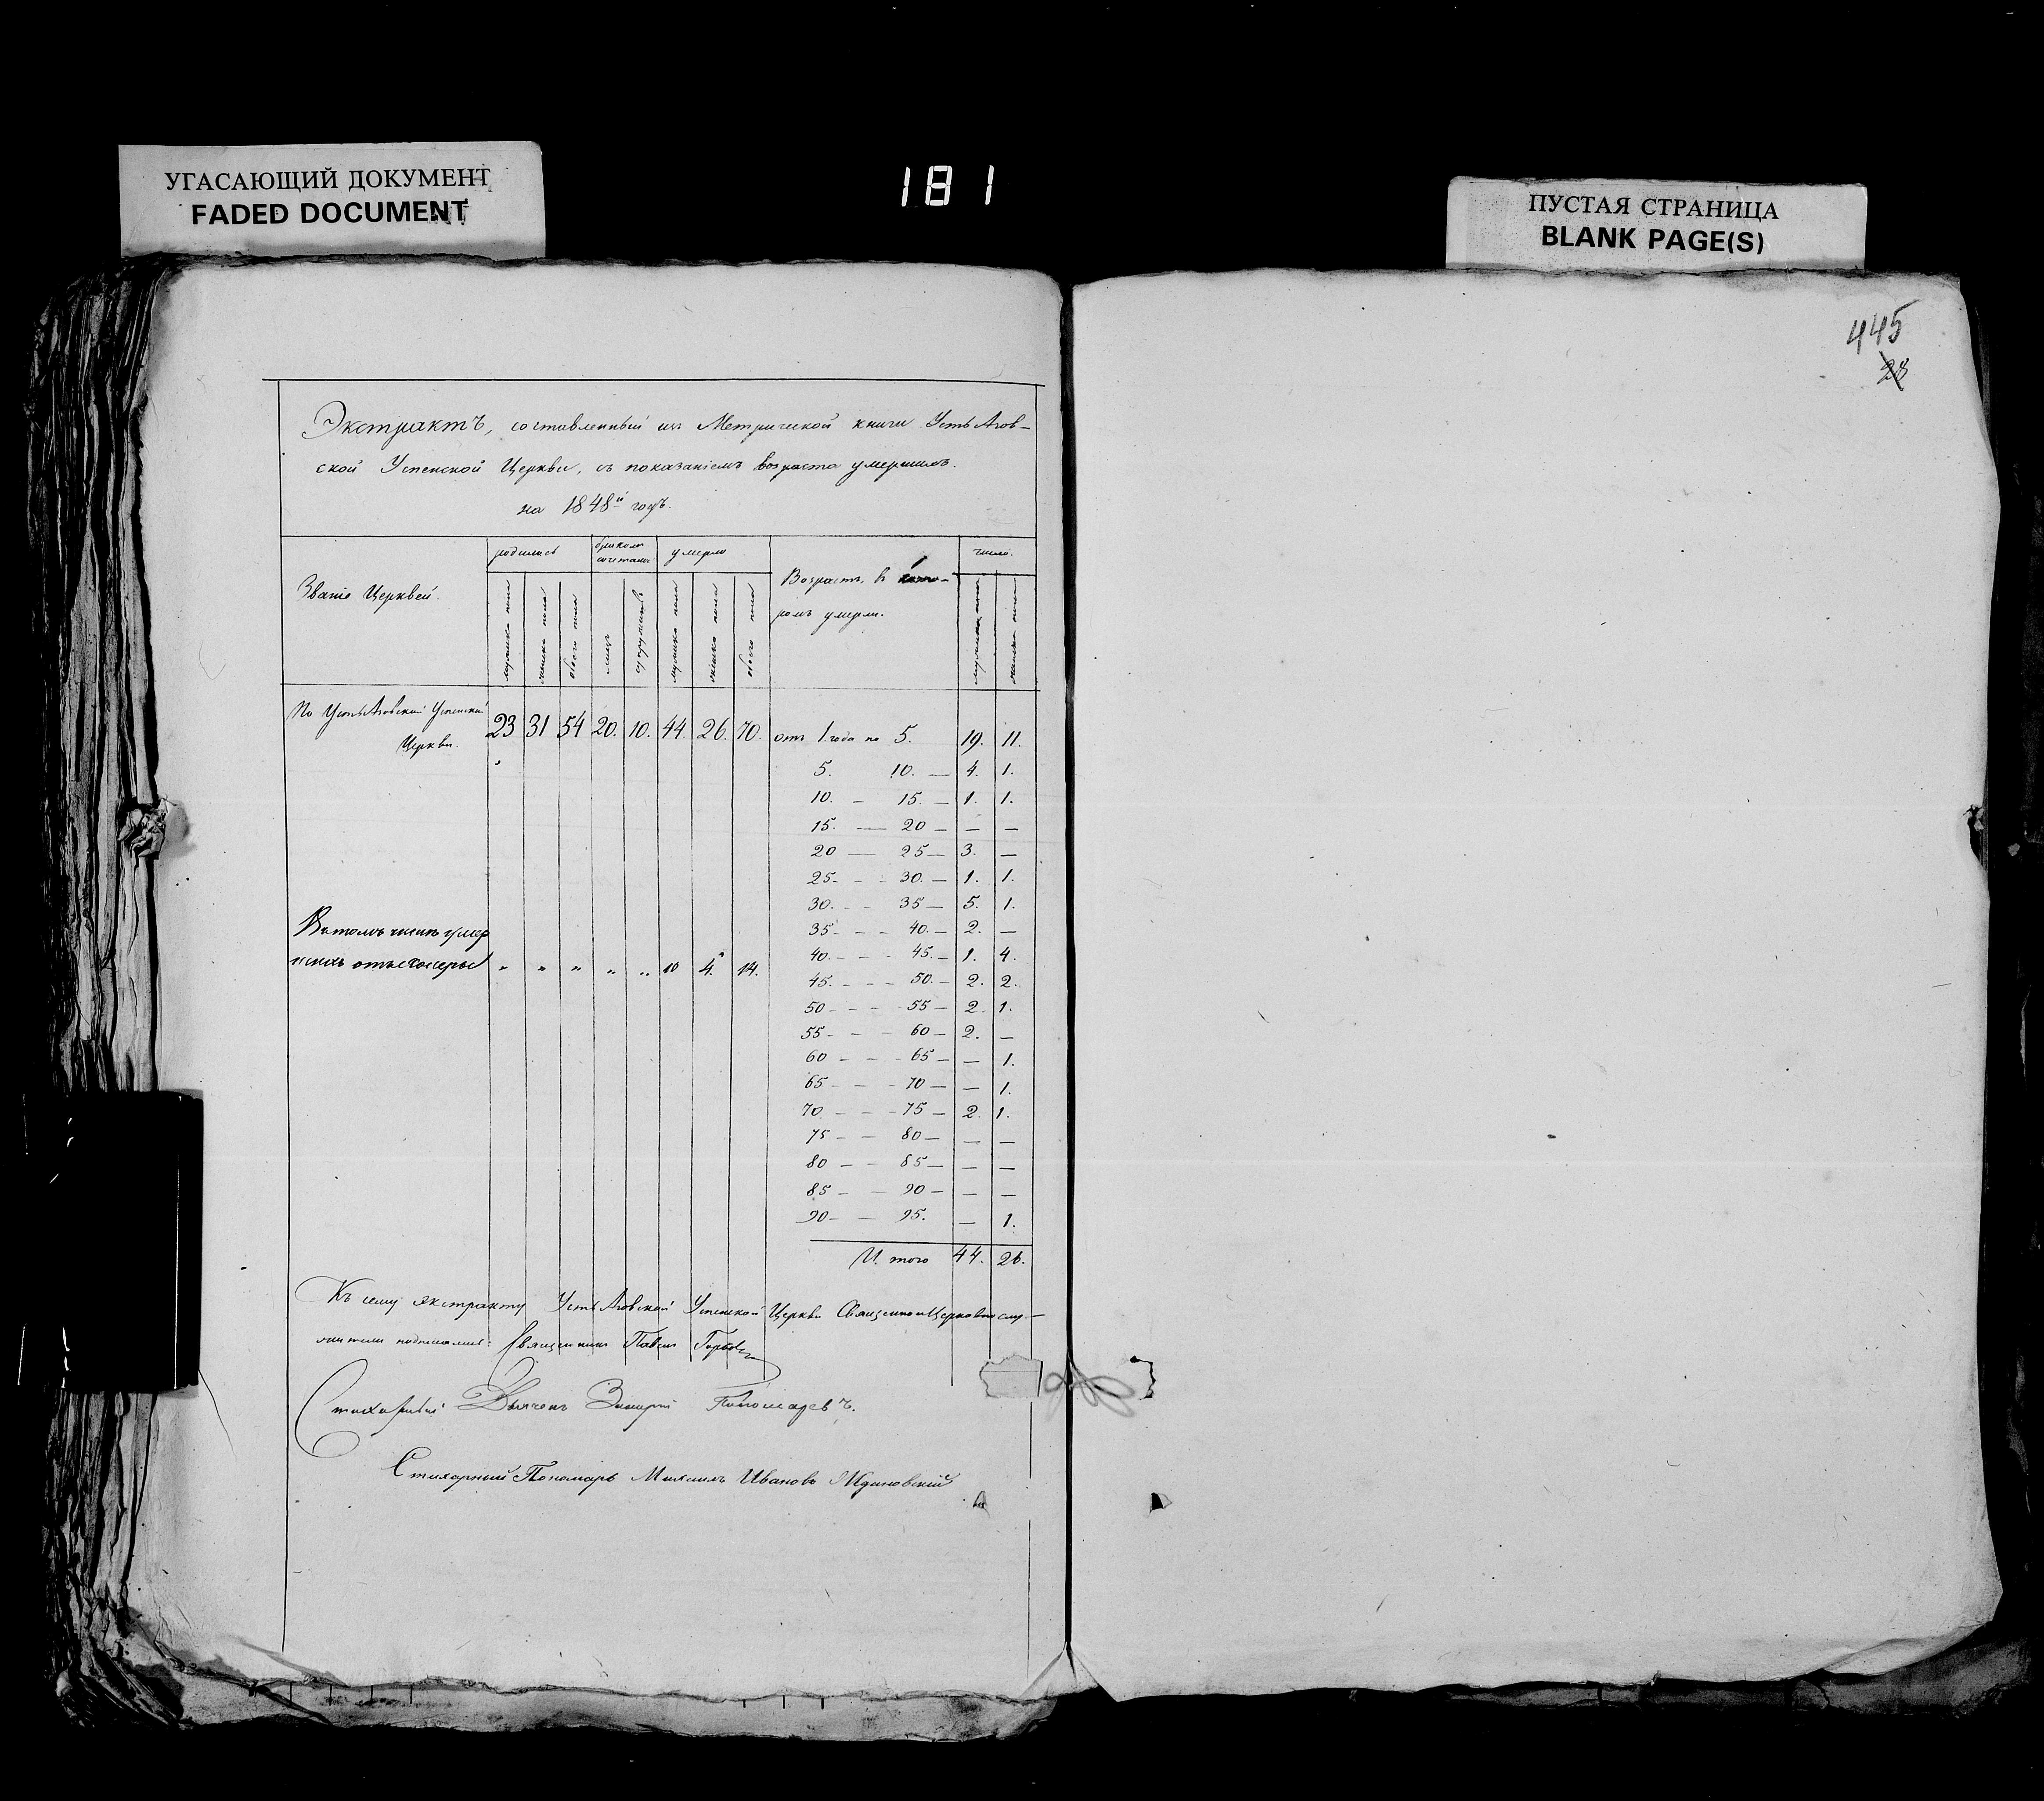 УГАСАЮЩИЙ ДОКУМЕНТ
FADED DOCUMENT
181
ПУСТАЯ СТРАНИЦА
BLANK PAGE(S)
445
28
Экстрактъ, составленный изъ Метрической книги Усть Аов-
ской Успенской Церкви, съ показаніемъ возраста умершихъ.
на 1848й годъ.
Званіе Церквей.
родилось
бракомъ
сочетано
умерло
Возрастъ, въ кото-
ромъ умерли.
число.
мужеска пола
женска пола
обоего пола
лицъ
супружествъ
мужеска пола
женска пола
обоего пола
мужеска пола
женска пола
По Усть Аовской Успенской
Церкви.
23 31 54 20. 10. 44. 26. 70. отъ 1 года по 5. 19. 11.
5. 10. — 4. 1.
10. — 15. — 1. 1.
15. — 20 — — —
20 — 25 — 3. —
25. - - 30. — 1. 1.
30. - - 35 — 5. 1.
35 - - - 40. — 2. —
40. - - - 45. — 1. 4.
45. - - - 50. — 2. 2.
50 - - - 55 — 2. 1.
55 - - - 60 — 2. —
60 - - - 65 — — 1.
65 - - - 70 — — 1.
70. - - - 75 — 2. 1.
75 - - 80 — — —
80 - - 85 — — —
85 - - 90 — — —
90 - - 95. — 1.
Въ томъ числѣ умер
шихъ отъ холеры „ „ „ „ „ 10 4. 14.
Итого 44. 26.
Къ сему экстракту Усть Аовской Успенской Церкви Священно и Церковно слу-
жители подписались: Священникъ Павелъ
Стихарный Дьячекъ Пономаревъ.
Стихарный Пономарь Михаилъ Ивановъ